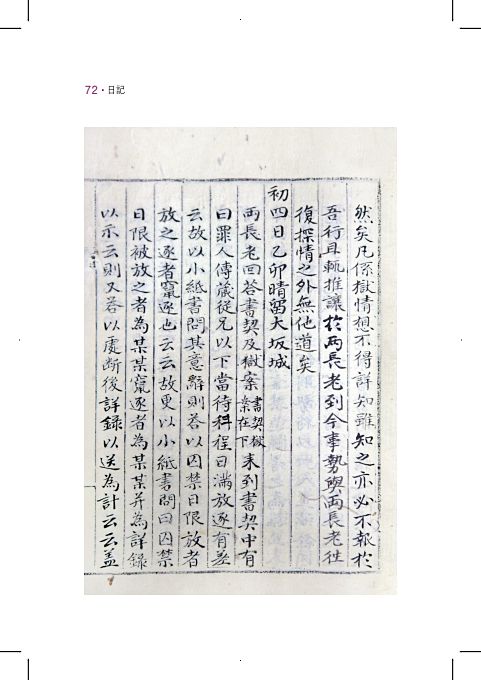 72・日記
然矣凡係獄情想不得詳知雖知之亦必不報於
吾行且輒推諉於兩長老到今事勢與兩長老往
復探情之外無他道矣
初四日乙卯晴留大坂城
兩長老回答書契及獄案書契獄案在下來到書契中有
曰罪人傳藏從兄以下當待科程日滿放逐有差
云故以小紙書問其意辭則答以囚禁日限放者
放之逐者竄逐也云云故更以小紙書問曰囚禁
日限被放之者為某某竄逐者為某某并為詳錄
以示云則又答以處斷後詳錄以送為計云云盖